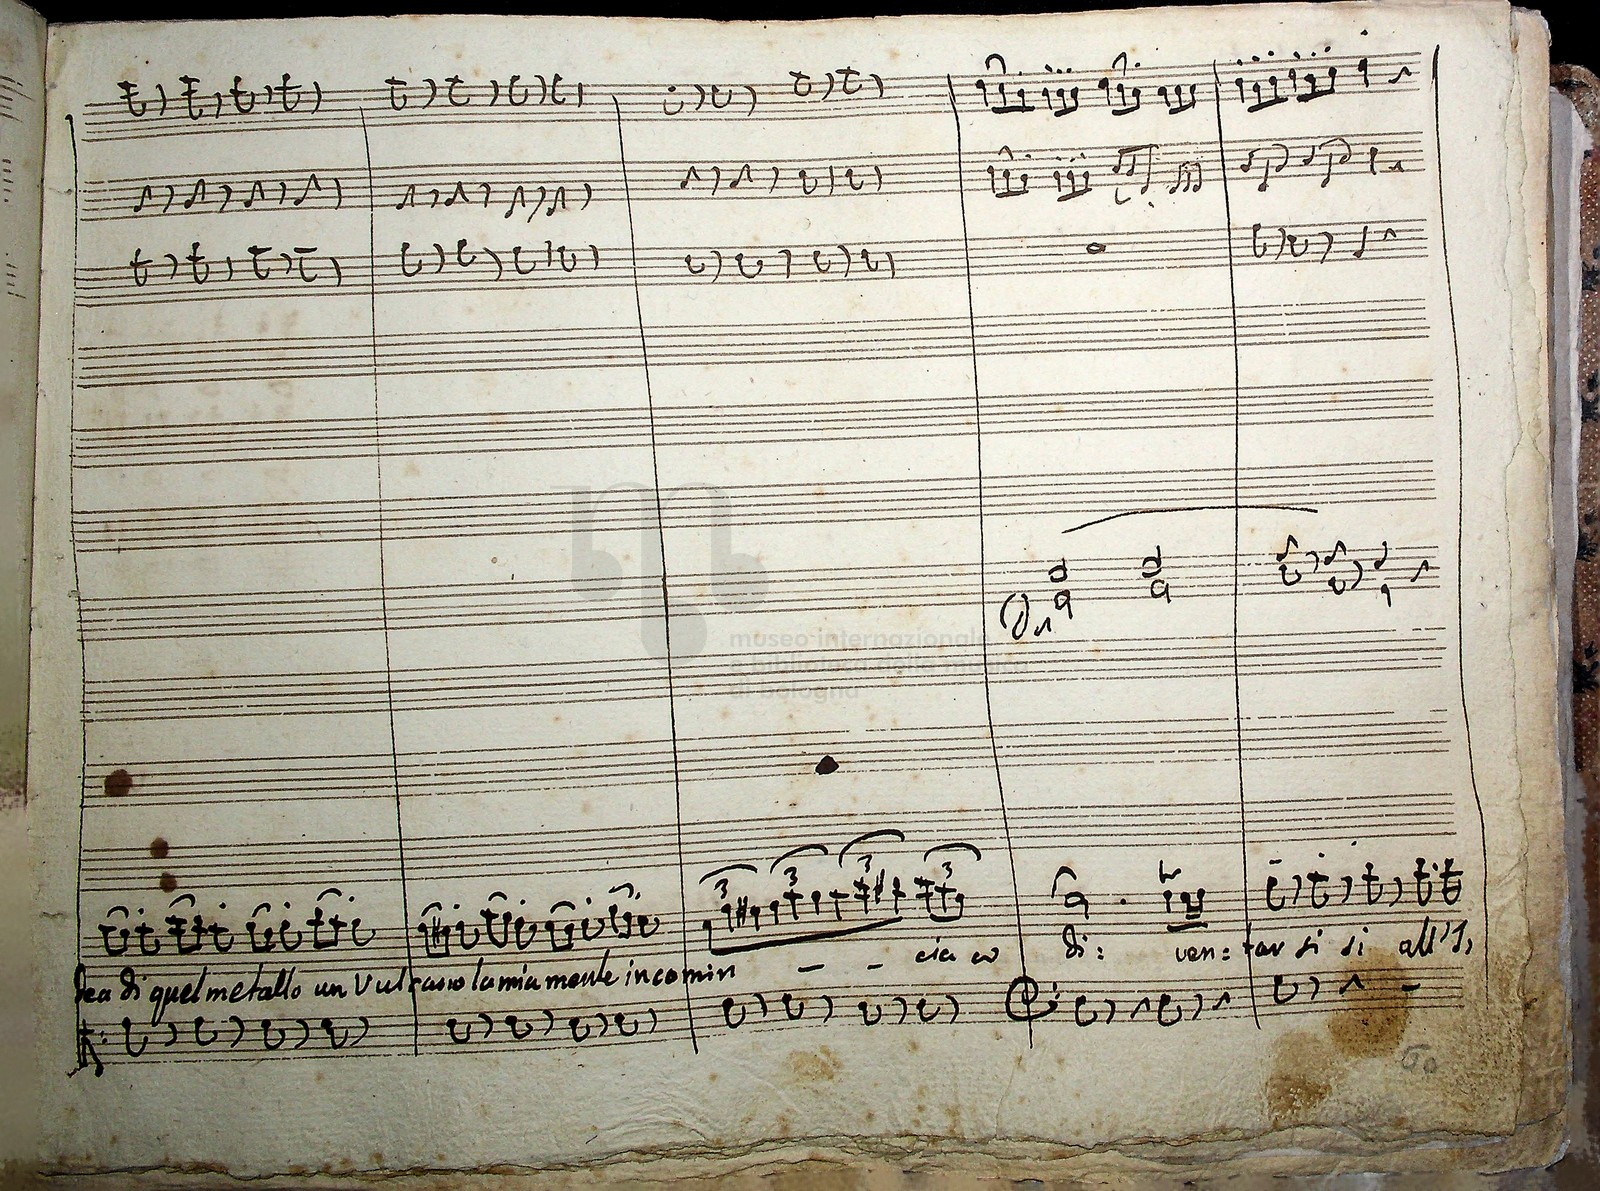 museo internazionale
e biblioteca della musica
di bologna
3 3 3 3
dea di quel metallo un Vulcano la mia mente incomin - - cia co di: ven= tar si si all'I,
60